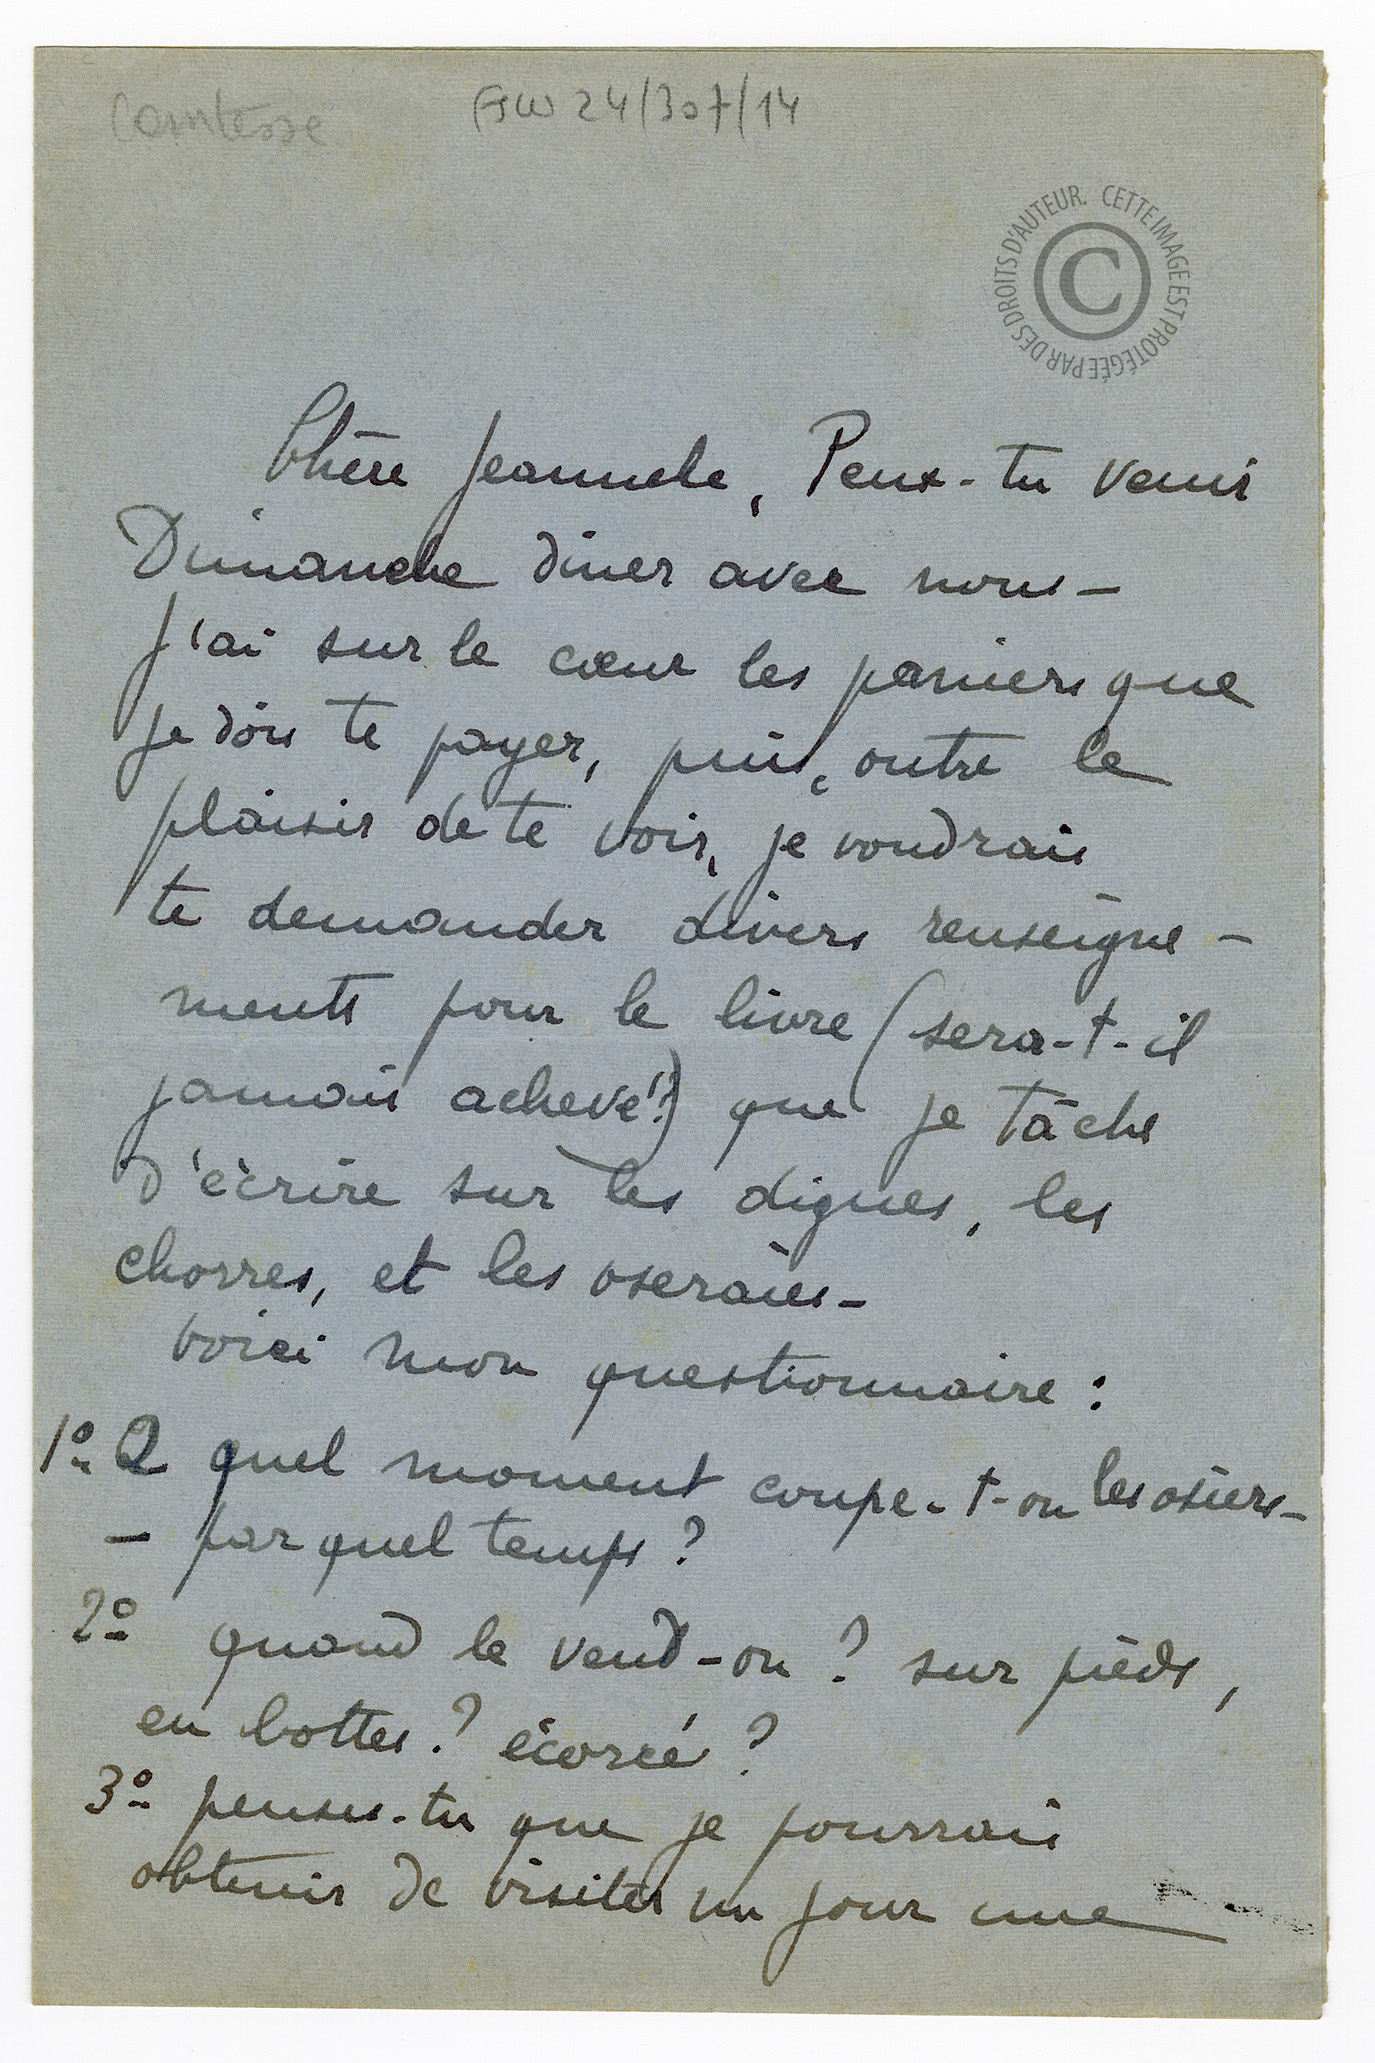 Comtesse
FSW 24/307/14
CETTE IMAGE EST PROTÉGÉE PAR DES DROITS D'AUTEUR.
©
Chère Jeannele, Peux-tu venir
Dimanche diner avec nous –
J'ai sur le cœur les paniers que
je dois te payer, puis, outre le
plaisir de te voir, je voudrais
te demander divers renseigne –
ments pour le livre (sera-t-il
jamais achevé?) que je tâche
d'écrire sur les digues, les
chorres, et les oseraies –
Voici mon questionnaire :
1º A quel moment coupe-t-on les osiers –
– par quel temps ?
2º quand le vend-on ? sur pieds,
en bottes ? écorcé ?
3º penses-tu que je pourrais
obtenir de visiter un jour une